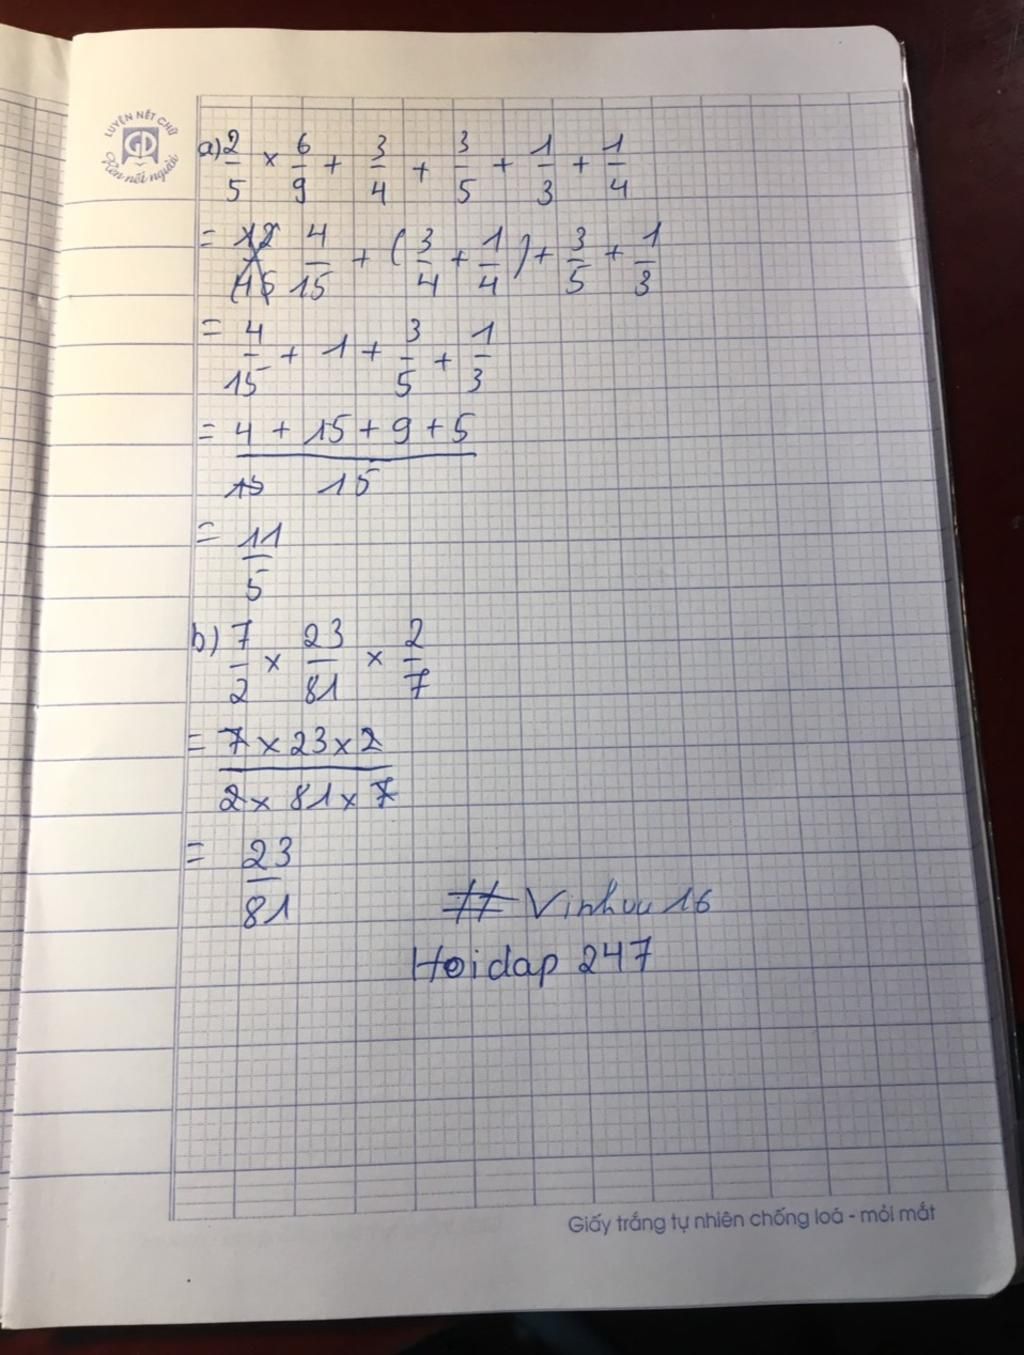 LUYỆN NÉT CHỮ
GD
Rèn nết người
a) 2/5 × 6/9 + 3/4 + 3/5 + 1/3 + 1/4
= 4/15 + (3/4 + 1/4) + 3/5 + 1/3
= 4/15 + 1 + 3/5 + 1/3
= 4 + 15 + 9 + 5 / 15
= 11/5
b) 7/2 × 23/81 × 2/7
= 7 × 23 × 2 / 2 × 81 × 7
= 23/81
# Vinhuu16
Hoidap 247
Giấy trắng tự nhiên chống loá - mỏi mắt